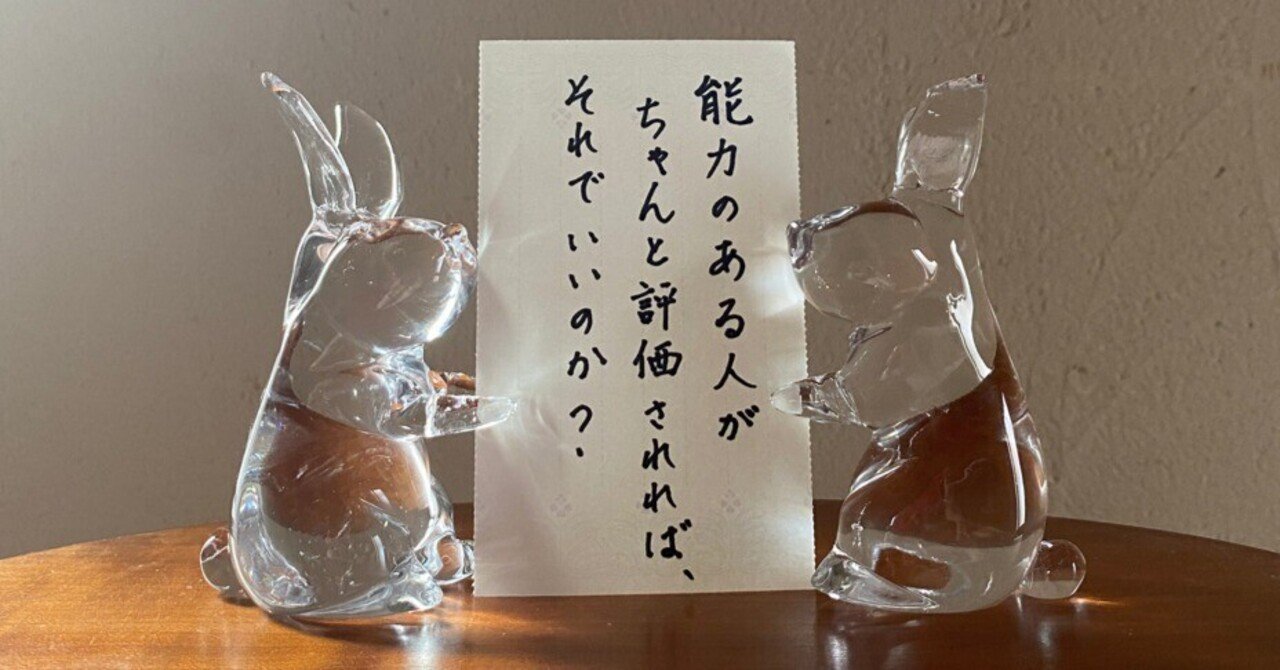 能力のある人が
ちゃんと評価されれば、
それでいいのか?